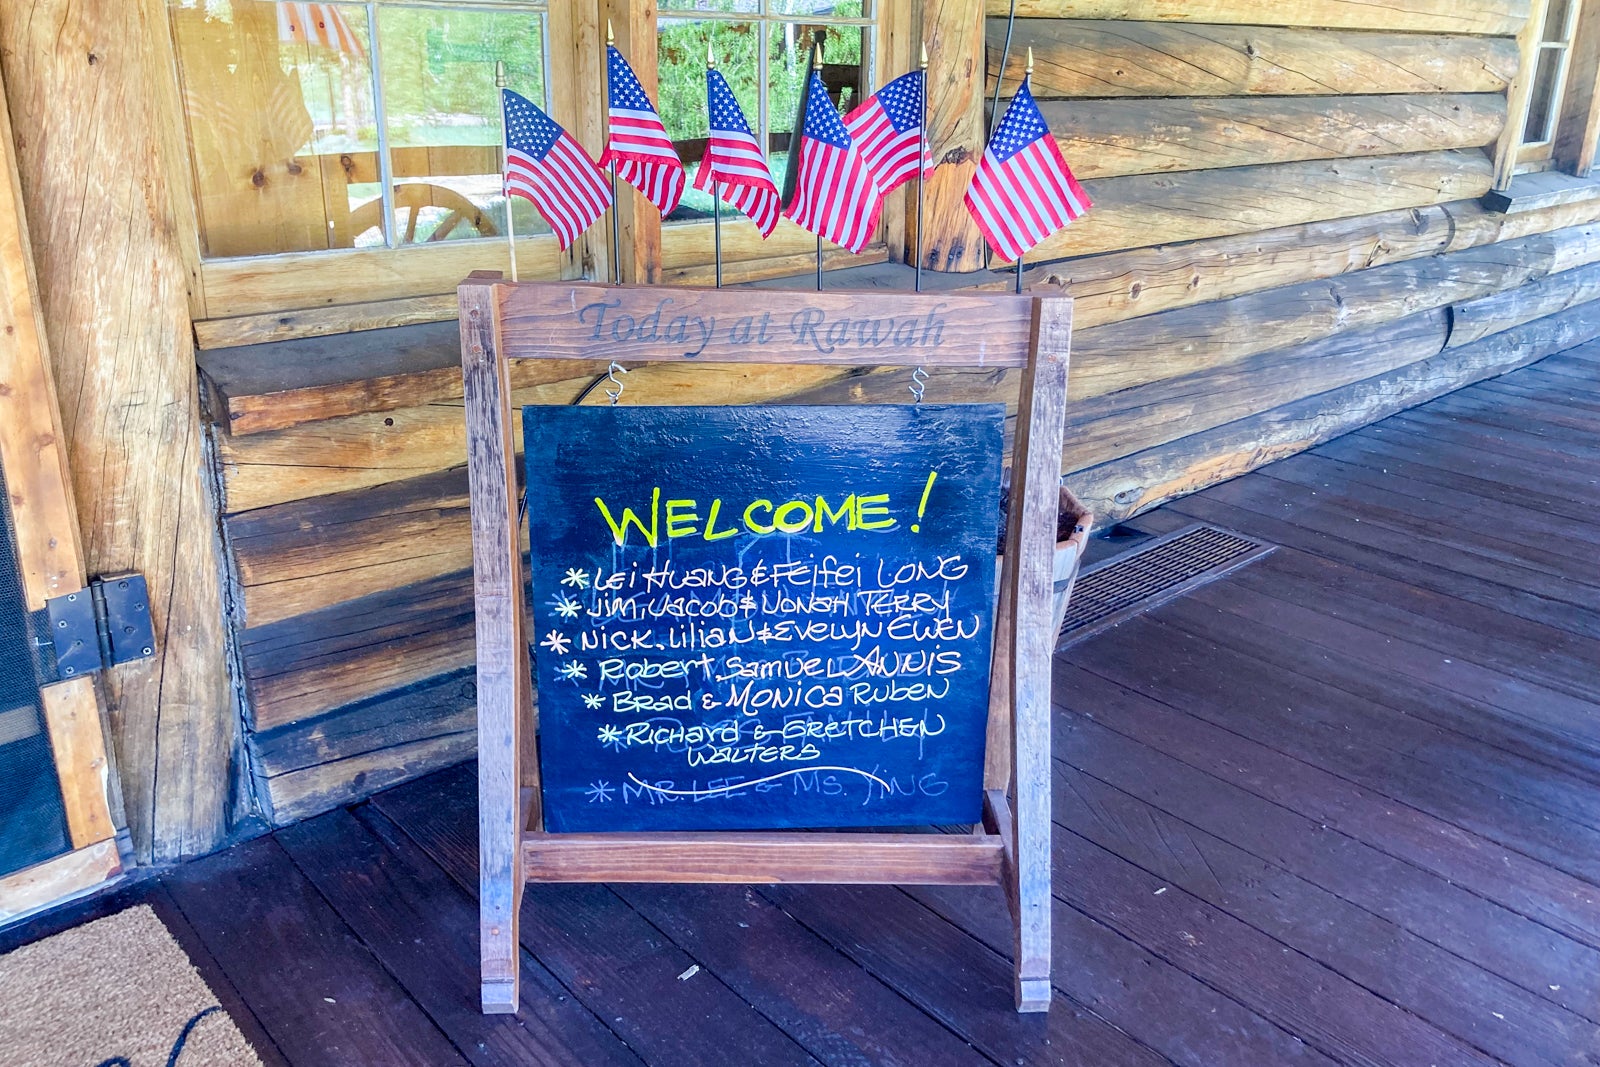 Today at Rawah
WELCOME!
* Lei Huang & Feifei LONG
* Jim, Jacob & Jonah TERRY
* Nick, Lilian & Evelyn Ewen
* Robert, Samuel Annis
* Brad & Monica Ruben
* Richard & Gretchen
Walters
* MR. LEE & MS. YING